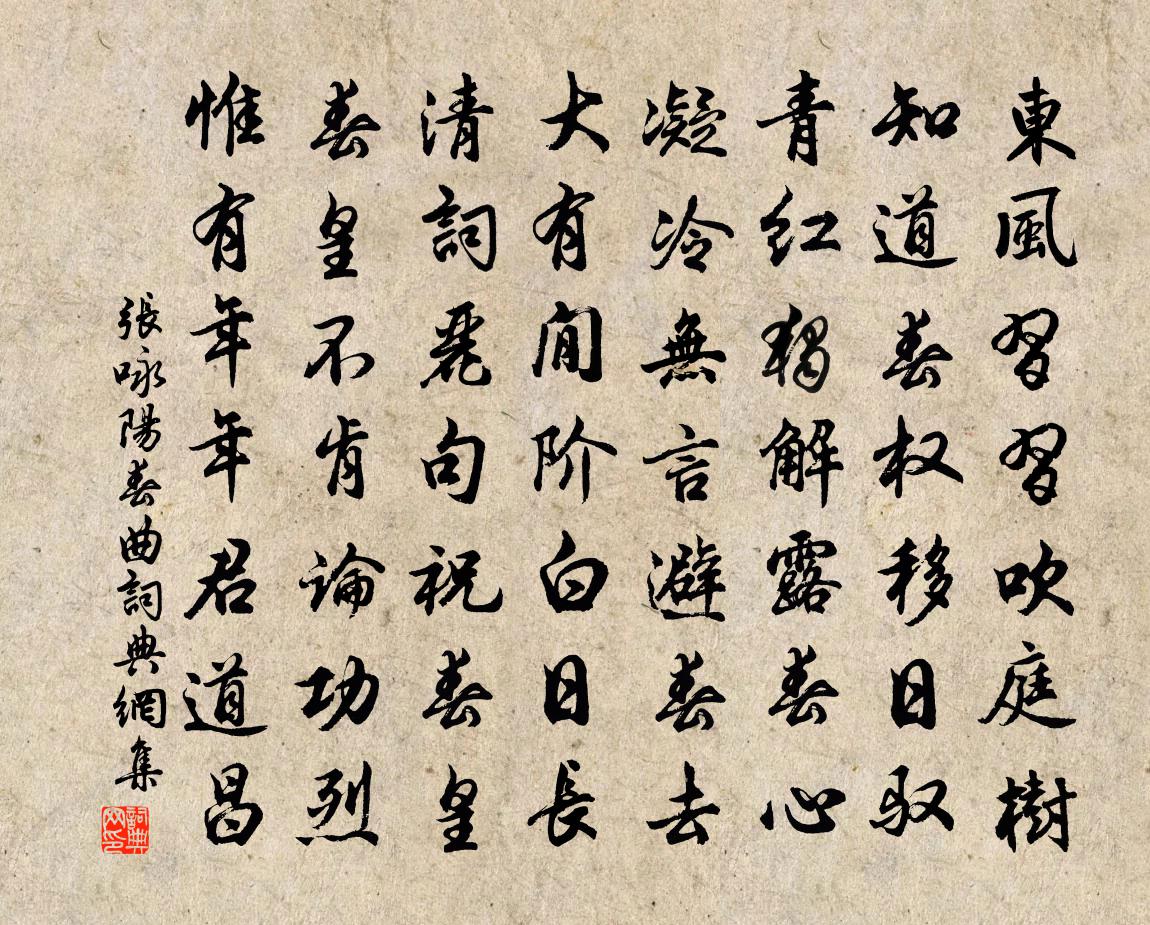 東風習習吹庭樹
知道春权移日驭
青红獨解露春心
凝冷無言避春去
大有閒阶白日長
清詞麗句祝春皇
春皇不肯論功烈
惟有年年君道昌
張咏陽春曲詞典網集
詞典網印